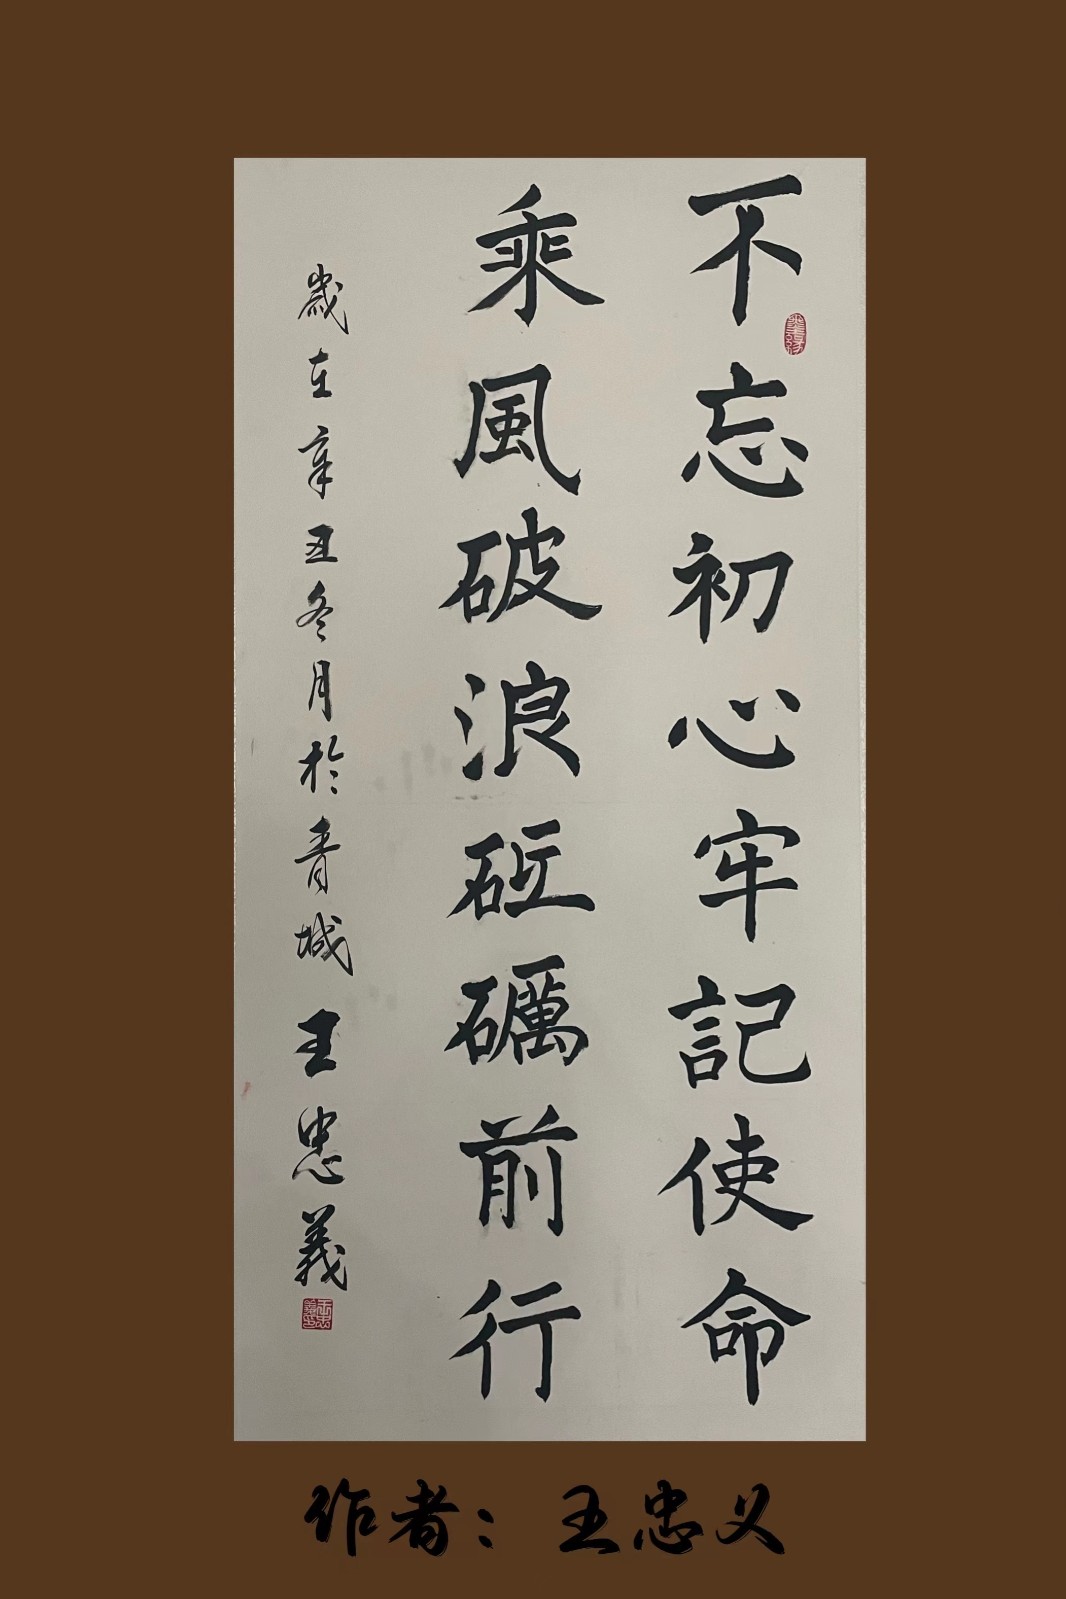 不忘初心牢記使命
乘風破浪砥礪前行
歲在辛丑冬月於青城王忠義
作者：王忠义